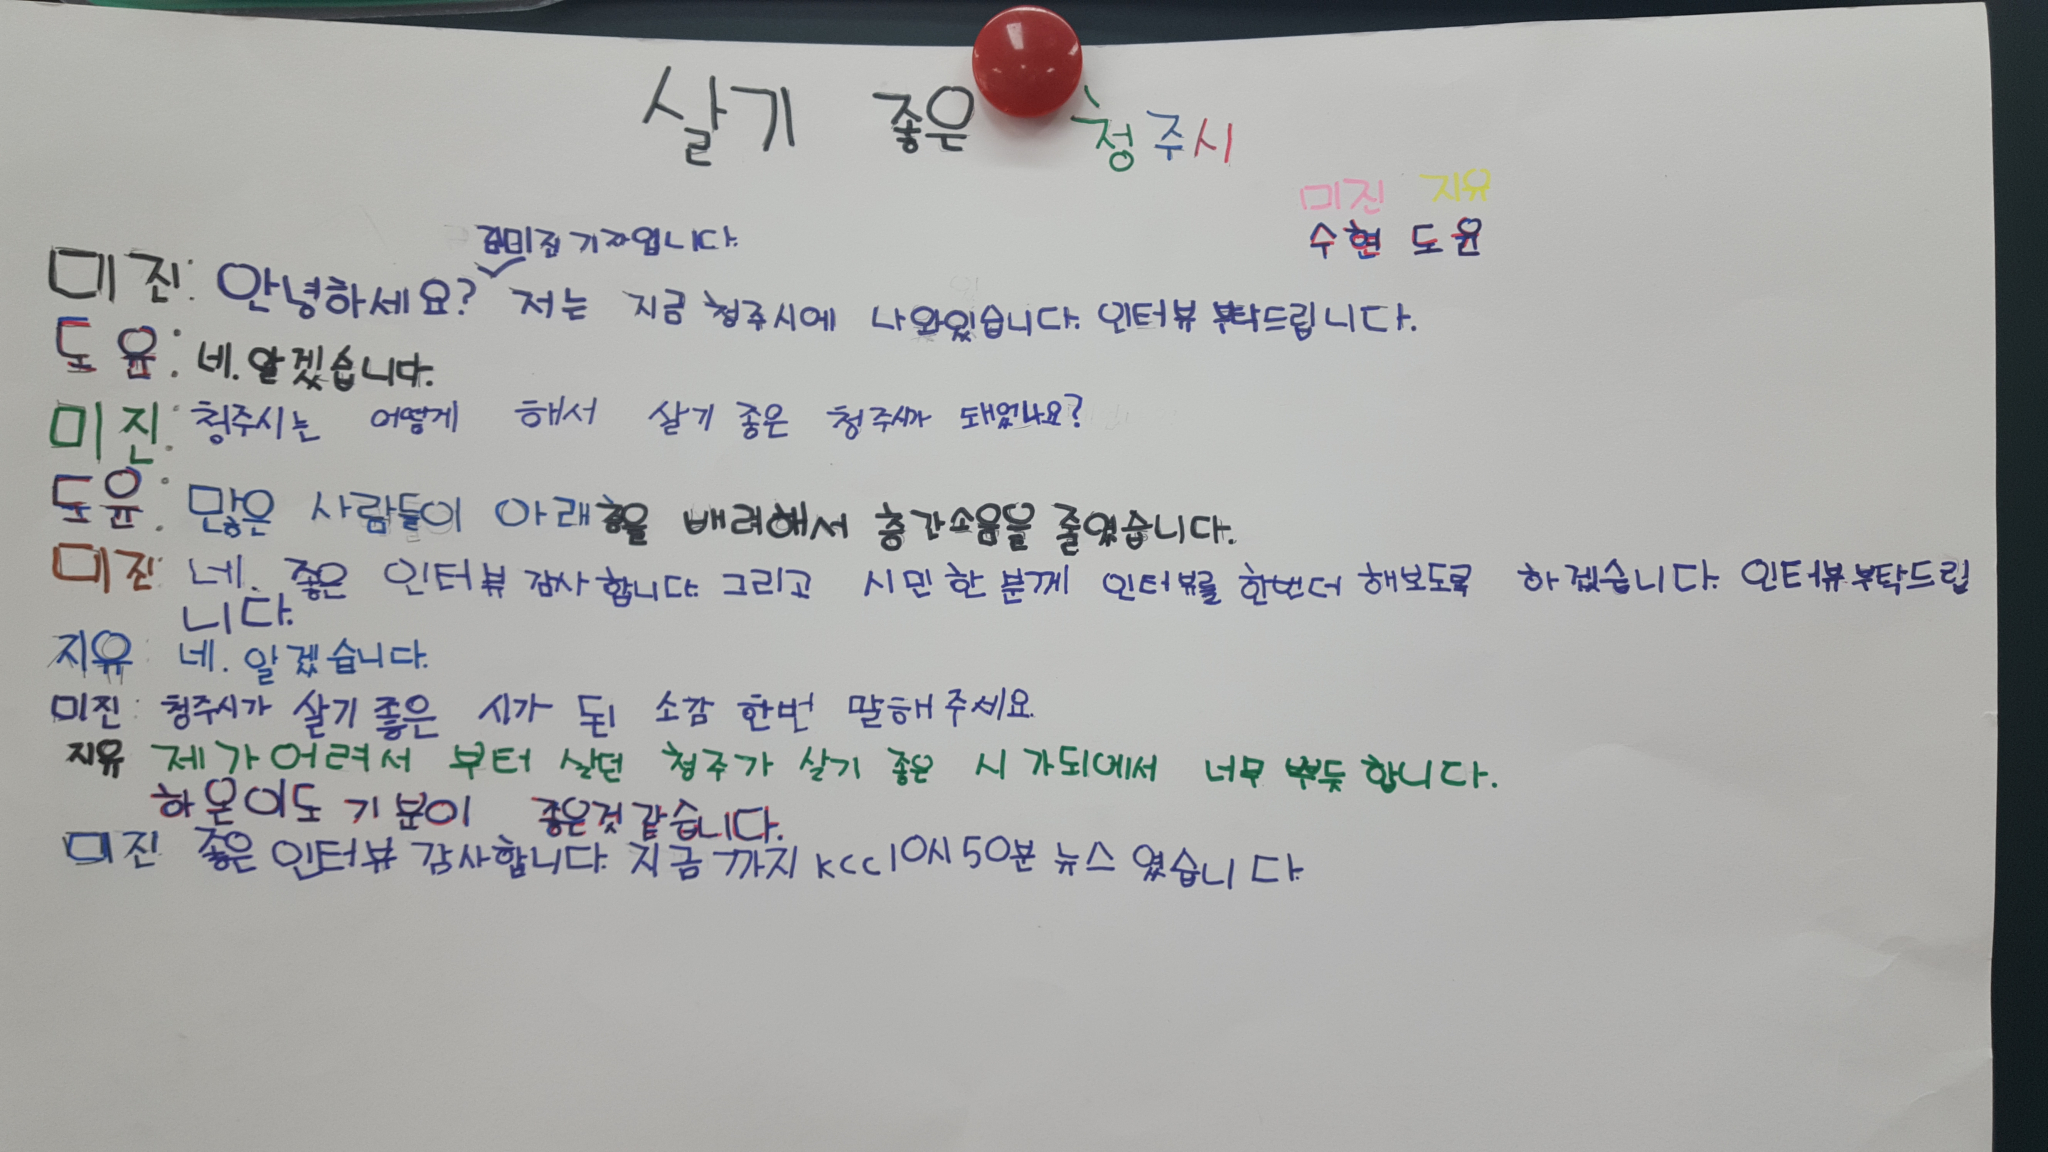 살기 좋은 청주시
미진 지유
수현 도윤
김미진 기자입니다.
미진: 안녕하세요? 저는 지금 청주시에 나와있습니다. 인터뷰 부탁드립니다.
도윤: 네. 알겠습니다.
미진: 청주시는 어떻게 해서 살기 좋은 청주시가 돼었나요?
도윤: 많은 사람들이 아래층을 배려해서 층간소음을 줄였습니다.
미진: 네. 좋은 인터뷰 감사합니다. 그리고 시민 한 분께 인터뷰를 한번더 해보도록 하겠습니다. 인터뷰부탁드립
니다.
지유: 네. 알겠습니다.
미진: 청주시가 살기 좋은 시가 된 소감 한번 말해주세요.
지유 제가어려서 부터 살던 청주가 살기 좋은 시가되에서 너무 뿌듯합니다.
하온이도 기분이 좋은것같습니다.
미진 좋은 인터뷰 감사합니다. 지금까지 KCC10시50분 뉴스 였습니다